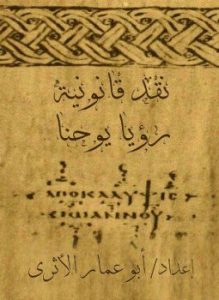 نقد قانونية
رؤيا يوحنا
ΑΠΟΚΑΛΥΨΙΣ
ΙΩΑΝΝΟΥ
إعداد/ أبو عمار الأثرى